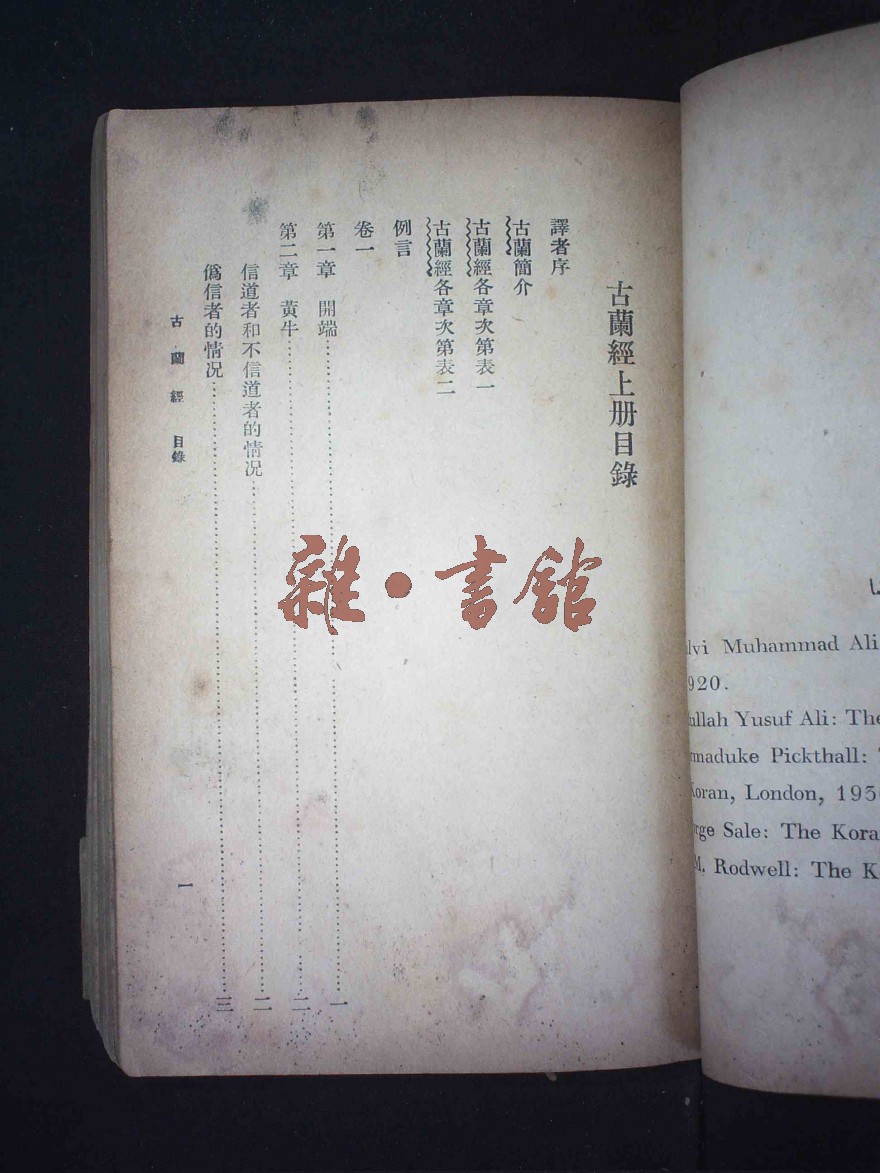 古蘭經上册目錄
譯者序
古蘭簡介
古蘭經各章次第表一
古蘭經各章次第表二
例言
卷一
第一章 開端……一
第二章 黃牛……二
信道者和不信道者的情况……二
僞信者的情况……三
古蘭經 目錄
一
雜·書館
lvi Muhammad Ali
920.
ullah Yusuf Ali: The
rmaduke Pickthall:
Koran, London, 193
rge Sale: The Kora
M. Rodwell: The K